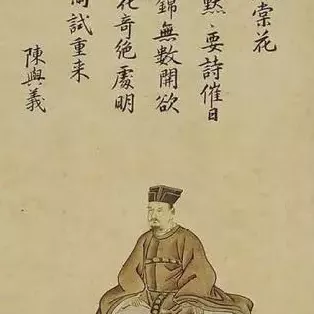 棠花
黙〻要詩催日
錦無數開欲
花奇絶處明
雨試重来
陳與義